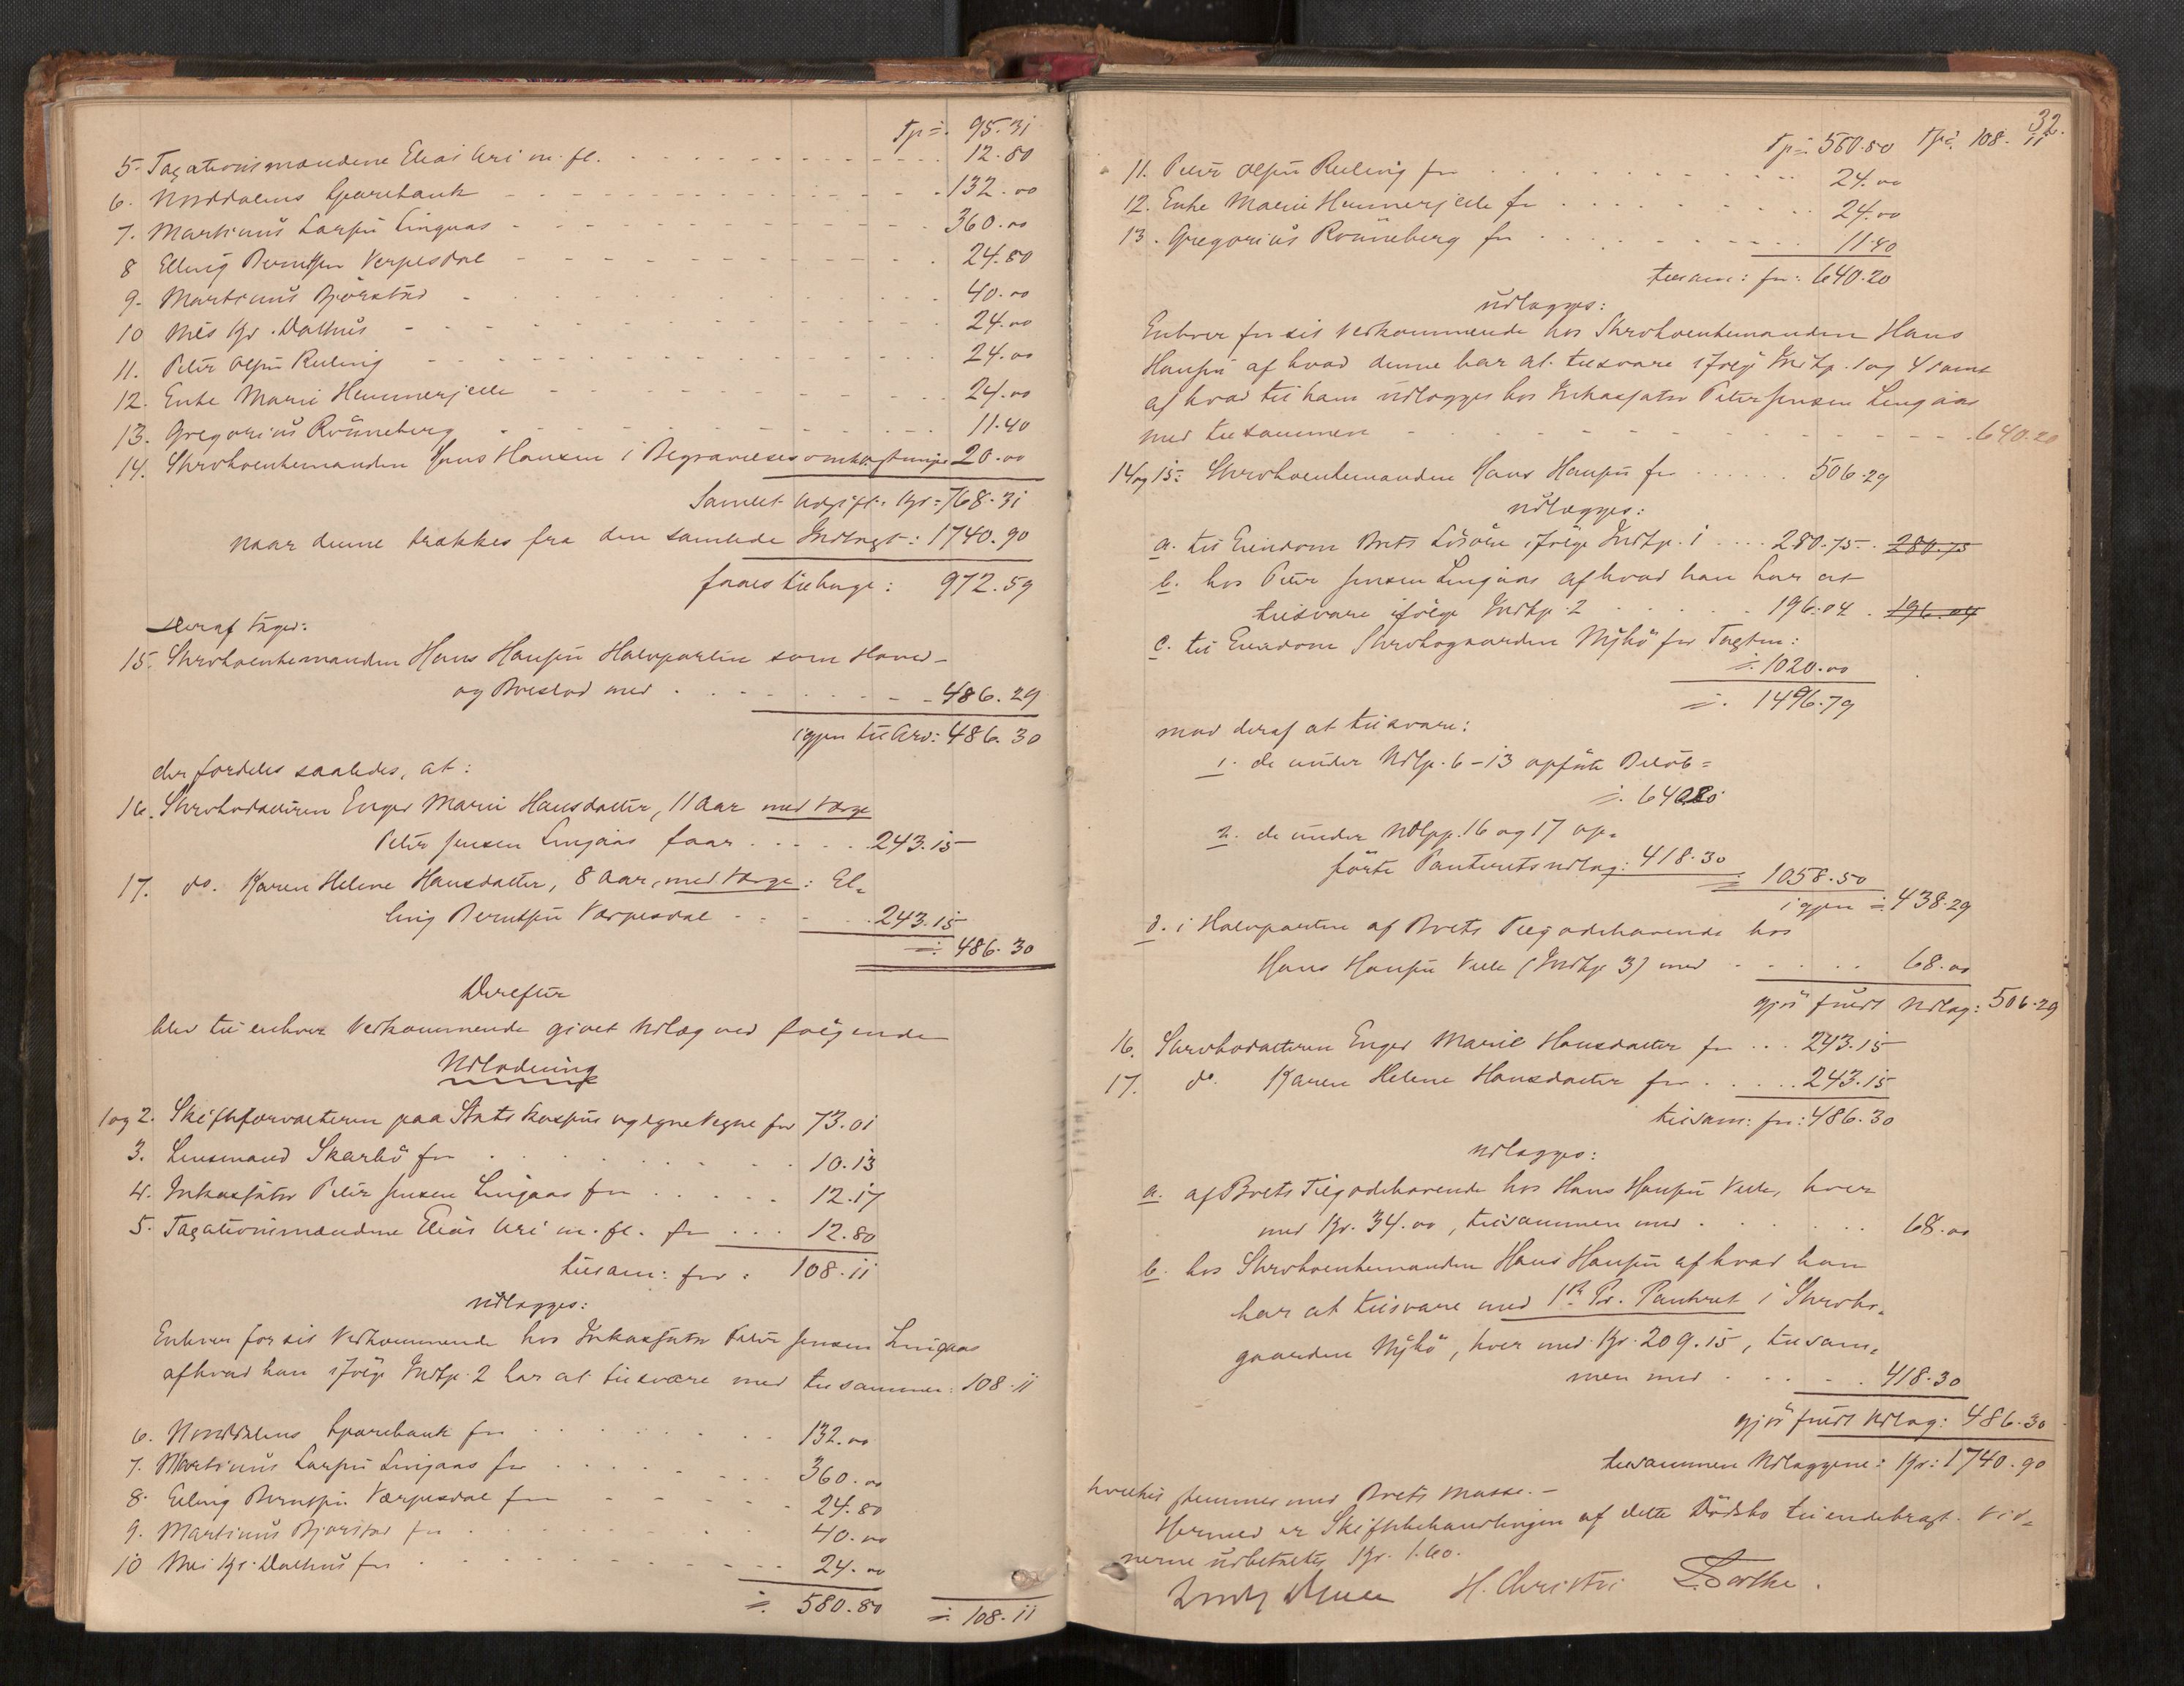 Tp ÷ 95.31
5. Taxationsmændene Elias Uri m. fl. 12.80
6. Norddalens Sparebank 132.00
7. Martinus Larsen Lingaas 360.00
8 Elling Berntsen Verpesdal 24.80
9. Martinus Bjørstad 40.00
10 Nils Kr. Dalhus 24.00
11. Peter Olsen Relling 24.00
12. Enke Marie Hammerjelle 24.00
13. Gregorius Rønneberg 11.40
14. Skrboenkemanden Hans Hansen i Begravelsesomkostninger 20.00
Samlet Udgift: Kr: 768.31
naar denne trækkes fra den samlede Indtægt: 1740.90
faaes tilbage: 972.59
Deraf tager:
15. Enkemanden Hans Hansen Halvparten som Hoved-
og Broslod med 486.29
igjen til Arv: 486.30
der fordeles saaledes, at:
16. datteren Inger Marie Hansdatter, 11 Aar med Værge
Peter Jensen Lingaas faar 243.15
17. do. Karen Helene Hansdatter, 8 Aar, med Værge: El-
ling Berntsen Verpesdal 243.15
÷ 486.30
Derefter
blev til enhver Vedkommende givet Udlæg ved følgende
Udlodning
1 og 2. Skifteforvalteren paa Statskassens og egne Vegne for 73.01
3. Lensmand Skarbø for 10.13
4. Inkassator Peter Jensen Lingaas for 12.17
5. Taxationsmændene Elias Uri m. fl. for 12.80
tilsam: for: 108.11
udlægges:
Enhver for sit Vedkommende hos Inkassator Peter Jensen Lingaas
af hvad han ifølge Indtp. 2 har at tilsvare med tilsammen: 108.11
6. Norddalens Sparebank for 132.00
7. Martinus Larsen Lingaas for 360.00
8. Elling Berntsen Verpesdal for 24.80
9. Martinus Bjørstad for 40.00
10 Nils Kr. Dalhus for 24.00
÷ 580.80 ÷ 108.11
32.
Tp ÷ 580.80 Tp ÷ 108.11
11. Peter Olsen Relling for 24.00
12. Enke Marie Hammerjelle for 24.00
13. Gregorius Rønneberg for 11.40
tilsam: for: 640.20
udlægges:
Enhver for sit Vedkommende hos Enkemanden Hans
Hansen af hvad denne har at tilsvare ifølge Indtp. 1 og 4 samt
af hvad til ham udlægges hos Inkassator Peter Jensen Lingaas
med tilsammen 640.20
14 og 15: Enkemanden Hans Hansen for 506.29
udlægges:
a. til Eiendom Boets Løsøre ifølge Indtp. 1 280.75 280.75
b. hos Peter Jensen Lingaas af hvad han har at
tilsvare ifølge Indtp. 2 196.04 196.04
c. til Eiendom gaarden Myhø for Taxten:
÷ 1020.00
÷ 1496.79
mod deraf at tilsvare:
1. de under Udlp. 6-13 opførte Beløb=
÷ 640.20
2. de under Udlpp. 16 og 17 op-
førte Panteretsudlæg: 418.30
÷ 1058.50
igjen ÷ 438.29
d. i Halvparten af Boets Tilgodehavende hos
Hans Hansen Velle (Indtp 3) med 68.00
gjør fuldt Udlæg: 506.29
16. datteren Inger Marie Hansdatter for 243.15
17. do. Karen Helene Hansdatter for 243.15
tilsam: for: 486.30
udlægges:
a. af Boets Tilgodehavende hos Hans Hansen Velle, hver
med Kr. 34.00, tilsammen med 68.00
b. hos Enkemanden Hans Hansen af hvad han
har at tilsvare med 1ste Pr. Panteret i
gaarden Myhø, hver med Kr. 209.15, tilsam-
men med 418.30
gjør fuldt Udlæg: 486.30
tilsammen Udlæggene: Kr: 1740.90
hvilket stemmer med Boets Masse.-
Hermed er Skiftebehandlingen af dette Dødsbo tilendebragt. Vid-
nerne udbetaltes Kr. 1.60.
H. Christie